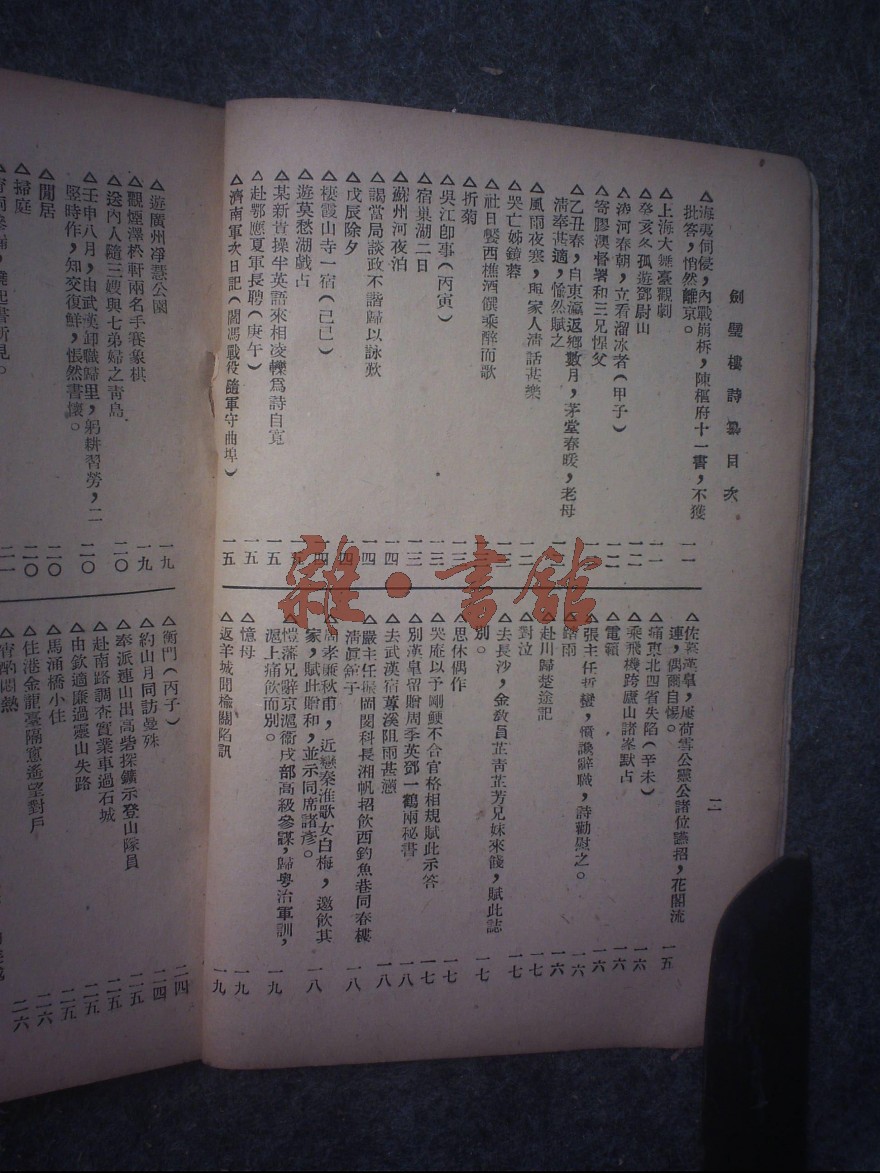 劍璧樓詩纂目次
△海夷侵,內戰崩析,陳樞府十一書,不獲
批答,悄然離京。 一一
△上海大舞臺觀劇 一一
△癸亥冬孤遊鄧尉山 一一
△海河春朝,立看溜冰者(甲子) 一二
△寄膠澳督署和三兄惺父 一二
△乙丑春,自東瀛返鄉數月,茅堂春暖,老母
清奉甚適,愉然賦之
△風雨夜寒,與家人清話甚樂 一二
△哭亡姊鏡蓉
△社日餐西樵酒饌乘醉而歌
△折菊
△吳江卽事(丙寅) 一三
△宿巢湖二日 一三
△蘇州河夜泊 一四
△謁當局談政不諧歸以詠歎 一四
△戊辰除夕
△棲霞山寺一宿(己巳)
△遊莫愁湖戲占
△某新貴操半英語來相凌轢爲詩自寬 一五
△赴鄂應夏軍長聘(庚午) 一五
△濟南軍次日記(閻馮戰役隨軍守曲埠) 一五
二
△佐幕漢皐,屢荷雪公靈公諸位讌招,花閣流
連,偶爾自惕。 一五
△痛東北四省失陷(辛未) 一六
△乘飛機跨廬山諸峯默占 一六
△電範 一六
△張主任哲蠻,憤讒辭職,詩勸慰之。 一六
雨 一六
△赴川歸楚途記 一七
△對泣
△去長沙,金敎員芷青芷芳兄妹來餞,賦此誌
別。 一七
△思休偶作 一七
△哭庵以予剛鯁不合官格相規賦此示答 一七
△別漢皐留贈周季英鄧一鶴兩秘書 一八
△去武漢宿蓴溪阻雨甚懣 一八
△嚴主任振岡閔科長湘帆招飲西釣魚巷同春樓
清眞館子 一八
△周孝廉秋甫,近戀秦淮歌女白梅,邀飲其
家,賦此贈和,並示同席諸彥。 一八
△愷藩兄辭京滬衞戍部高級參謀,歸粵治軍訓,
滬上痛飮而別。 一九
△憶母 一九
△返羊城聞榆關陷訊 一九
△遊廣州凈慧公園 一九
△觀煙澤松軒兩名手賽象棋 一九
△送內人隨三嫂與七弟婦之靑島 二〇
△壬申八月,由武漢卸職歸里,躬耕習勞,二
豎時作,知交復鮮,悵然書懷。 二〇
△閒居 二〇
△掃庭 二〇
二一
△衡門(丙子) 二四
△約山月同訪曼殊 二四
△奉派連山出高砦探鑛示登山隊員 二五
△赴南路調査實業車過石城 二五
△由欽適廉過靈山失路 二五
△馬涌橋小住 二五
△住港金龍臺隔窻遙望對戶 二六
△宵酌悶熱 二六
雜·書館